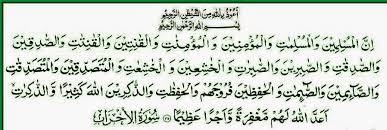 أَعُوذُ بِاللهِ مِنَ الشَّيْطٰنِ الرَّجِيْمِ
بِسْمِ اللهِ الرَّحْمٰنِ الرَّحِيْمِ
اِنَّ الْمُسْلِمِيْنَ وَالْمُسْلِمٰتِ وَالْمُؤْمِنِيْنَ وَالْمُؤْمِنٰتِ وَالْقٰنِتِيْنَ وَالْقٰنِتٰتِ وَالصّٰدِقِيْنَ
وَالصّٰدِقٰتِ وَالصّٰبِرِيْنَ وَالصّٰبِرٰتِ وَالْخٰشِعِيْنَ وَالْخٰشِعٰتِ وَالْمُتَصَدِّقِيْنَ وَالْمُتَصَدِّقٰتِ
وَالصَّآئِمِيْنَ وَالصّٰٓئِمٰتِ وَالْحٰفِظِيْنَ فُرُوْجَهُمْ وَالْحٰفِظٰتِ وَالذّٰكِرِيْنَ اللهَ كَثِيْرًا وَّالذّٰكِرٰتِ
اَعَدَّ اللهُ لَهُمْ مَّغْفِرَةً وَّاَجْرًا عَظِيْمًا سُوْرَةُ الْاَحْزَابِ